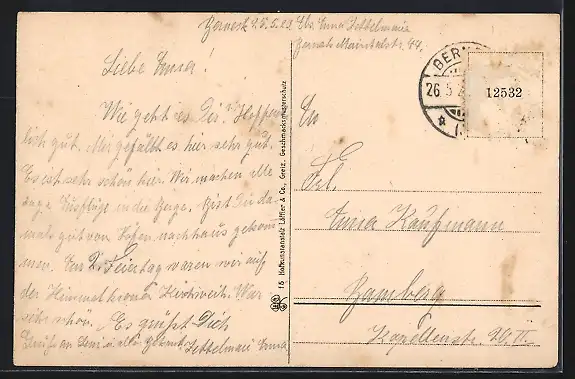 Berneck 25.5.23 Abs. Anna Settelmaie
Berneck Mainthalstr. 44.
Liebe Emia!
Wie geht es Dir? Hoffen
lich gut. Mir gefällt es hier sehr gut.
Es ist sehr schön hier. Wir machen alle
Tage Ausflüge in die Berge. Bist Du da
mals gut von nachhaus gekom
men. Am 2. Feiertag waren wir auf
der Himmelkroner Kirchweih. War
sehr schön. Es grüßt Dich
Settelmaie Anna
15 Hofkunstanstalt Löffler & Co., Greiz. Geschmacksmusterschutz
BER
26.5.2
12532
An
Frl.
Emia Kaufmann
Bamberg
Kapellenstr. 20.II.